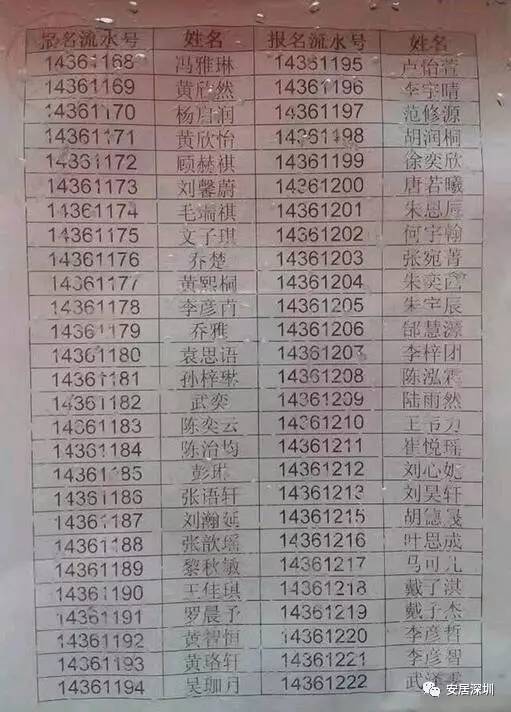 报名流水号 姓名 报名流水号 姓名
14361168 冯雅琳 14361195 卢怡萱
14361169 黄欣然 14361196 李宇晴
14361170 杨启润 14361197 范修源
14361171 黄欣怡 14361198 胡润桐
14361172 顾赫祺 14361199 徐奕欣
14361173 刘馨蔚 14361200 唐若曦
14361174 毛瑞祺 14361201 朱恩辰
14361175 文子琪 14361202 何宇翰
14361176 乔楚 14361203 张宛菁
14361177 黄熙桐 14361204 朱奕
14361178 李彦 14361205 朱宇辰
14361179 乔雅 14361206 郜慧源
14361180 袁思语 14361207 李梓团
14361181 孙梓琳 14361208 陈泓霖
14361182 武奕 14361209 陆雨然
14361183 陈奕云 14361210 王
14361184 陈治均 14361211 崔悦瑶
14361185 彭琳 14361212 刘心妮
14361186 张语轩 14361213 刘昊轩
14361187 刘瀚延 14361215 胡德晟
14361188 张歆瑶 14361216 叶思成
14361189 黎秋敏 14361217 马可凡
14361190 王佳琪 14361218 戴子淇
14361191 罗晨予 14361219 戴子杰
14361192 黄智恒 14361220 李彦哲
14361193 黄珞轩 14361221 李彦智
14361194 吴珈月 14361222 武
安居深圳